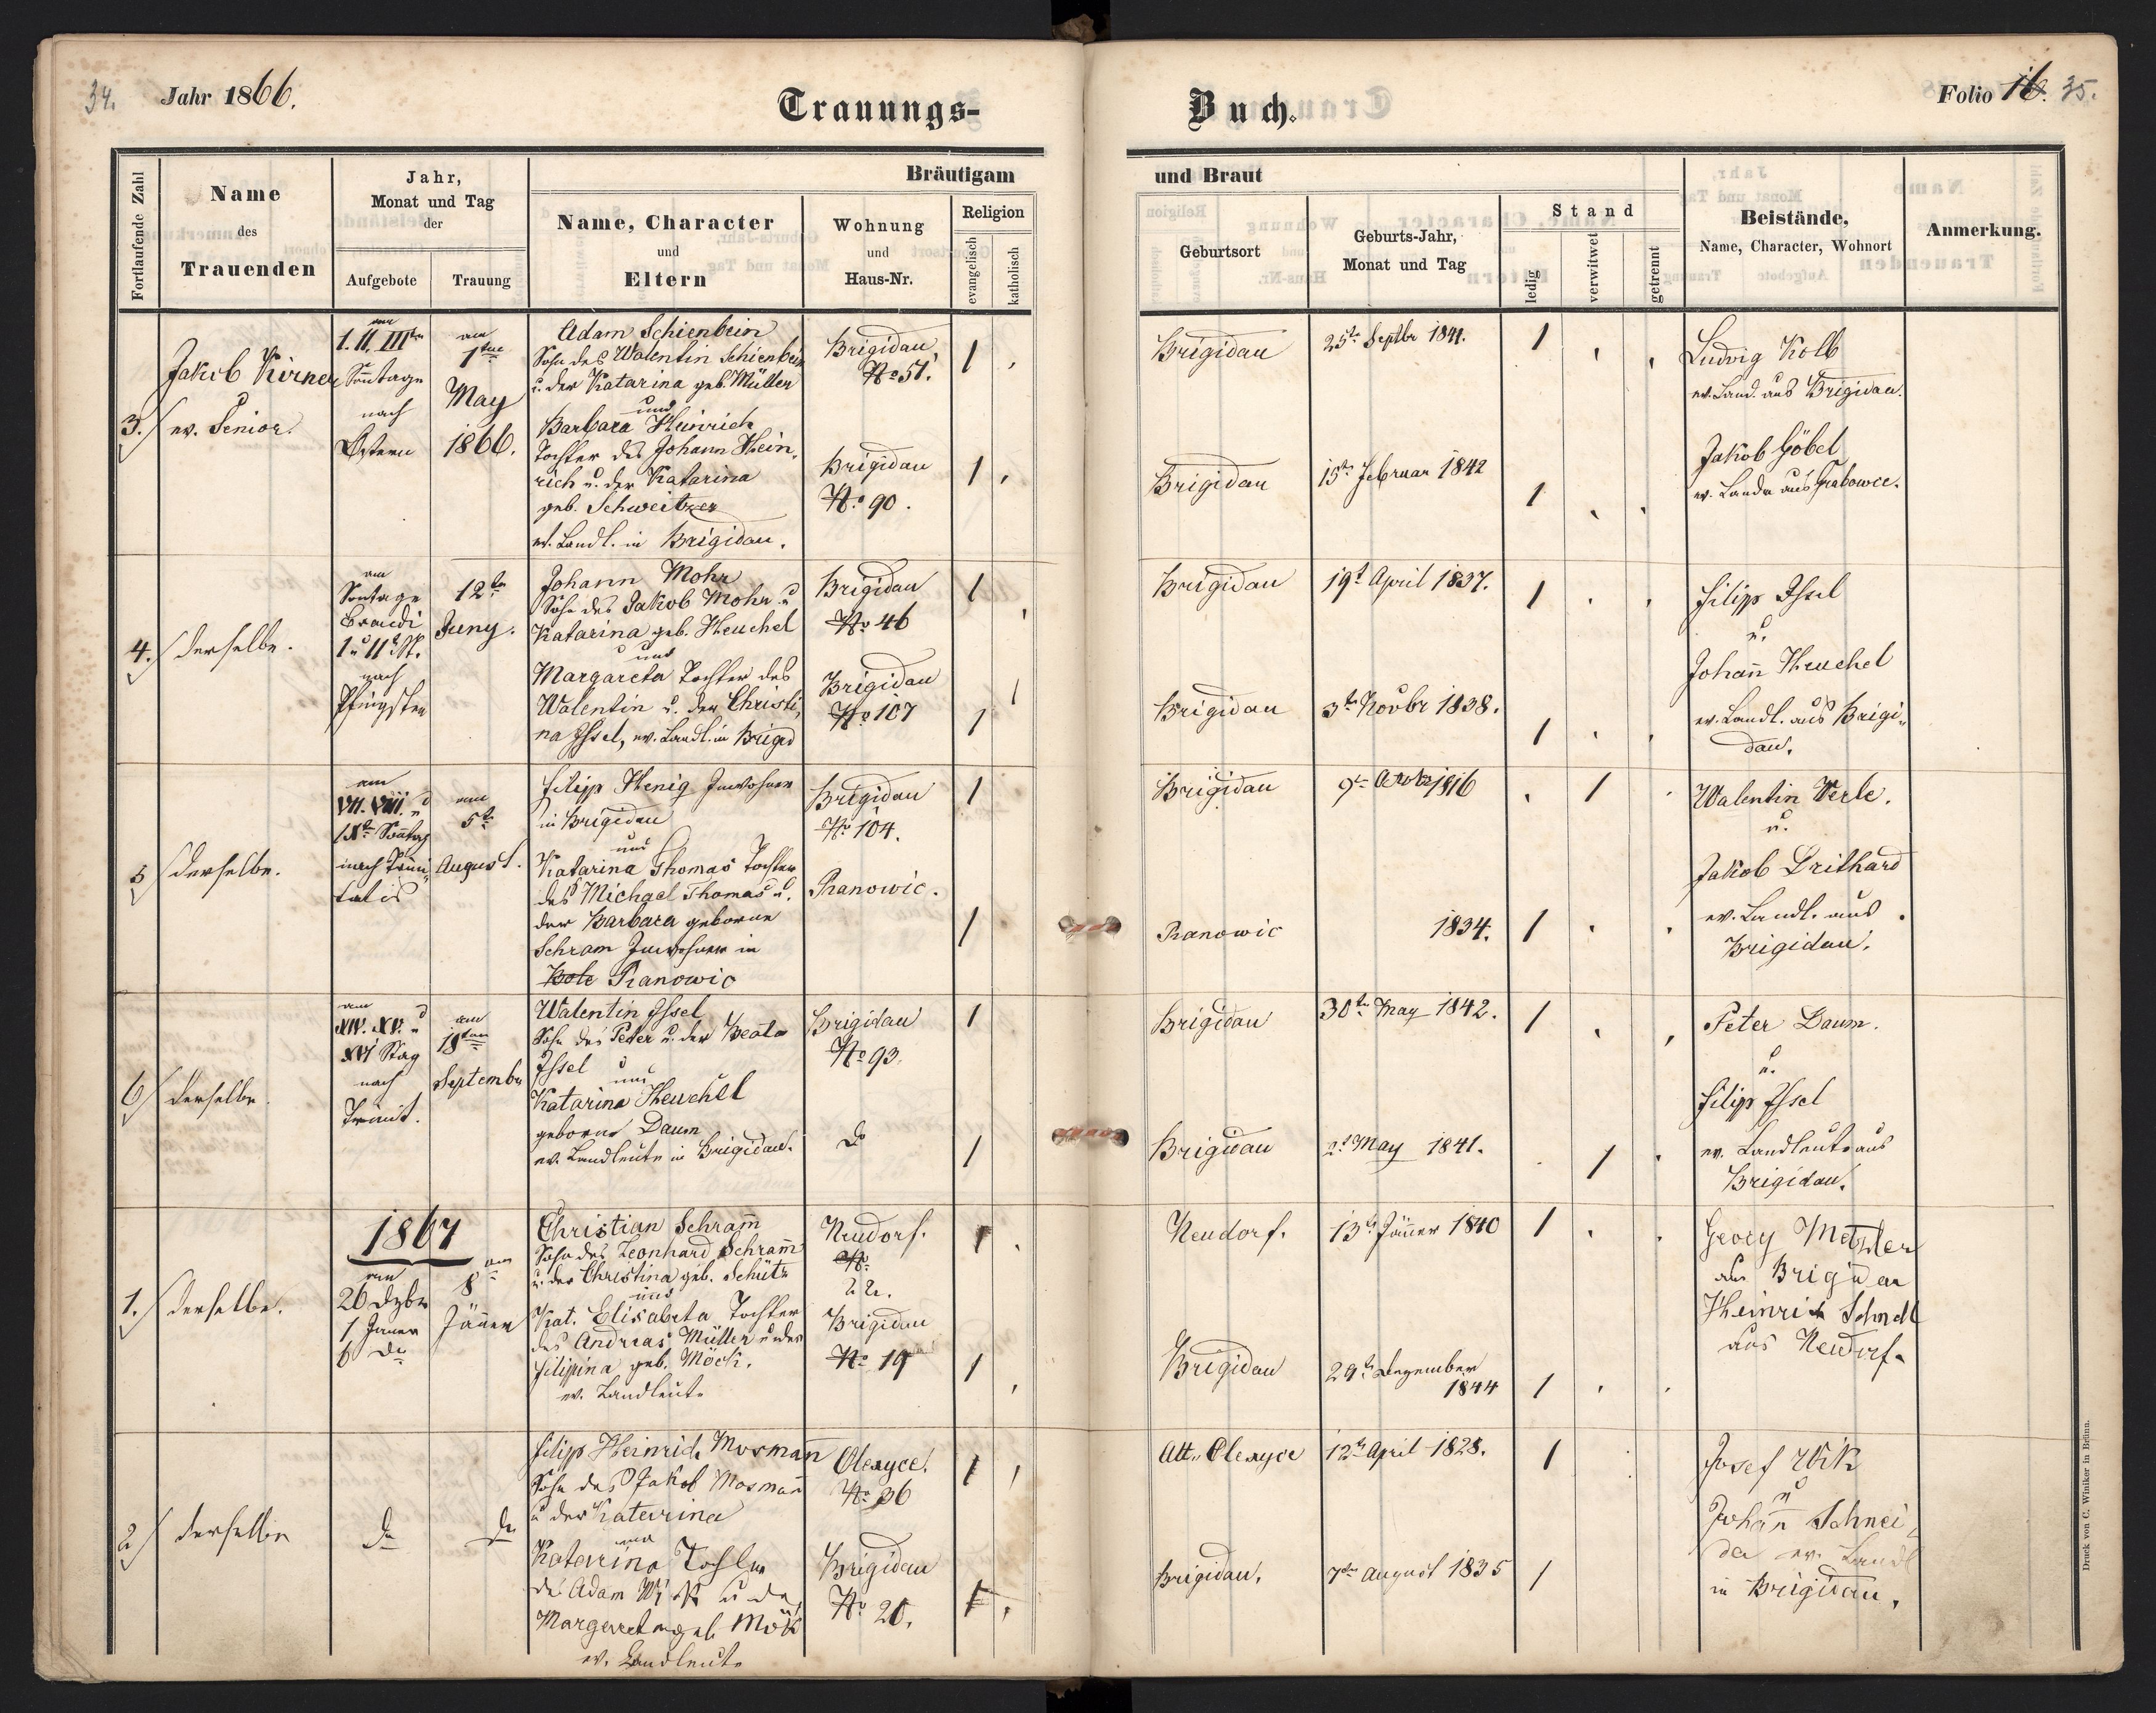 34.
Jahr 1866.
Trauungs-
Buch.
Folio 16. 35.
Fortlaufende Zahl
Name
des
Trauenden
Jahr,
Monat und Tag
der
Aufgebote
Trauung
Bräutigam
Name, Character
und
Eltern
Wohnung
und
Haus-Nr.
Religion
evangelisch
katholisch
und Braut
Geburtsort
Geburts-Jahr,
Monat und Tag
Stand
ledig
verwitwet
getrennt
Beistände,
Name, Character, Wohnort
Anmerkung.
3.
Jakob Kirner
ev. Senior.
am
1. II. III ten
Soñtage
nach
Ostern
am
1ten
May
1866.
Adam Schienbein
Sohn des Walentin Schienbein
u. der Katarina geb. Müller
und
Barbara Heinrich
Tochter des Johann Hein,
rich u. der Katarina
geb. Schweitzer
ev. Landl. in Brigidau.
Brigidau
No 51.
Brigidau
No 90.
1
1
Brigidau
25te Septbr 1841.
1
Brigidau
15te Februar 1842
1
Ludvig Kolb
ev. Land. aus Brigidau.
Jakob Göbel
ev. Landm aus Grabowce.
4.
derselbe.
am
Sontage
Exaudi
1 u 11
nach
Pfingsten
12te
Juny.
Johann Mohr
Sohn des Jakob Mohr u
Katarina geb. Heuchel
und
Margareta Tochter des
Walentin u. der Christi,
na Issel, ev. Landl. in Brigd
Brigidau
No 46
Brigidau
No 107
1
1
Brigidau
19t April 1837.
1
Brigidau
3te Novbr 1838.
1
Filip Issel
u.
Johañ Heuchel
ev. Landl. aus Brigi,
dau.
5
derselbe.
am
VII. VIII. u
IXte Soñtag
nach Trini,
tatis
am
5te
August.
Filipp Henig Inwohner
in Brigidau
und
Katarina Thomas Tochter
des Michael Thomas u.
der Barbara geborne
Schram Inwohner in
Bole Ranowic
Brigidau
No 104.
Ranowic.
1
1
Brigidau
1816
1
Ranowic
1834.
1
Walentin Werle.
u.
Jakob Drithard
ev. Landl. aus
Brigidau.
6
derselbe.
am
XIV. XV. u
XVI Stag
nach
Trinit.
am
18ten
Septembr
Walentin Issel
Sohn des Peter u. der Beata
Issel
und
Katarina Heuchel
geborne Daum
ev. Landleute in Brigidau.
Brigidau
No 93.
do
1
1
Brigidau
30te May 1842.
1
Brigidau
2t May 1841.
1
Peter Daum.
u.
Filip Issel
ev. Landleute aus
Brigidau.
1867
1.
derselbe.
am
26 Dzbr
1 Janer
6 do
am
8
Jäner
Christian Schram̃
Sohn des Leonhard Schram̃
u. der Christina geb. Schütz
und
Kat. Elisabeta Tochter
des Andreas Müller u der
Filipina geb. Möck.
ev. Landleute
Neudorf.
No
22.
Brigidau
No 19
1
1
Neudorf.
13te Jäner 1840
1
Brigidau
29te Dezember
1844
1
Georg Metzler
aus Brigidau
Heinrich
aus Neudorf.
2
derselbe
do
do
Filipp Heinrich Mosmañ
Sohn des Jakob Mosmañ
u der Katarina
und
Katarina Tochter
des Adam Wik u der
Margareta geb. Mök
ev. Landleute
Olexyce.
No 36
Brigidau
No 20.
1
1
Alt. Olexyce
12te April 1828.
1
Brigidau.
7te August 1835
1
Josef Wik
u
Johañ Schnei,
der ev. Landl
in Brigidau.
Druck von C. Winiker in Brünn.